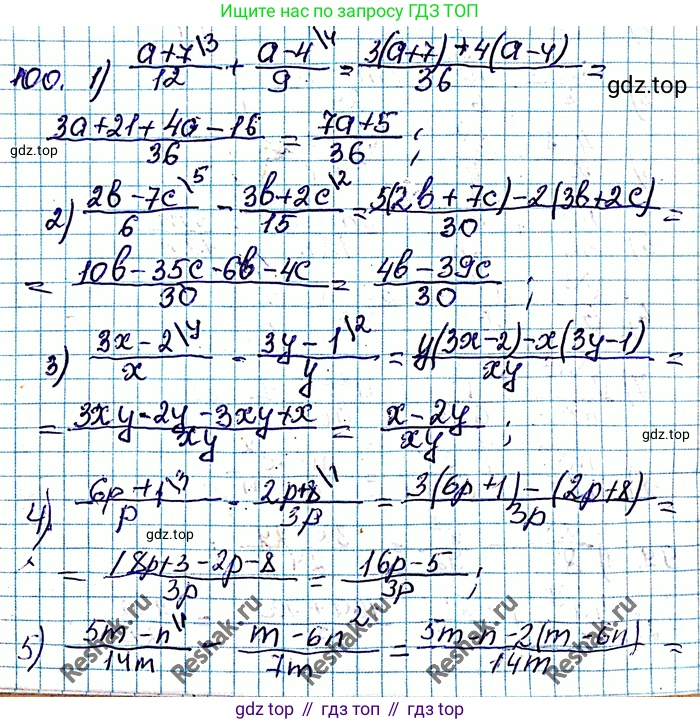 Ищите нас по запросу ГДЗ ТОП
100. 1) (a+7\3)/12 + (a-4\4)/9 = (3(a+7)+4(a-4))/36 =
gdz.top
(3a+21+4a-16)/36 = (7a+5)/36 ;
gdz.top
2) (2b-7c\5)/6 - (3b+2c\2)/15 = (5(2b+7c)-2(3b+2c))/30 =
= (10b-35c-6b-4c)/30 = (4b-39c)/30 ;
3) (3x-2\y)/x - (3y-1\2)/y = (y(3x-2)-x(3y-1))/xy =
= (3xy-2y-3xy+x)/xy = (x-2y)/xy ;
gdz.top
4) (6p+1\3)/p - (2p+8\1)/3p = (3(6p+1)-(2p+8))/3p =
gdz.top
= (18p+3-2p-8)/3p = (16p-5)/3p ;
5) (5m-n\1)/14m - (m-6n\2)/7m = (5m-n-2(m-6n))/14m =
Reshak.ru
Reshak.ru
Reshak.ru
Reshak.ru
gdz.top // gdz.top // gdz.top // gdz.top